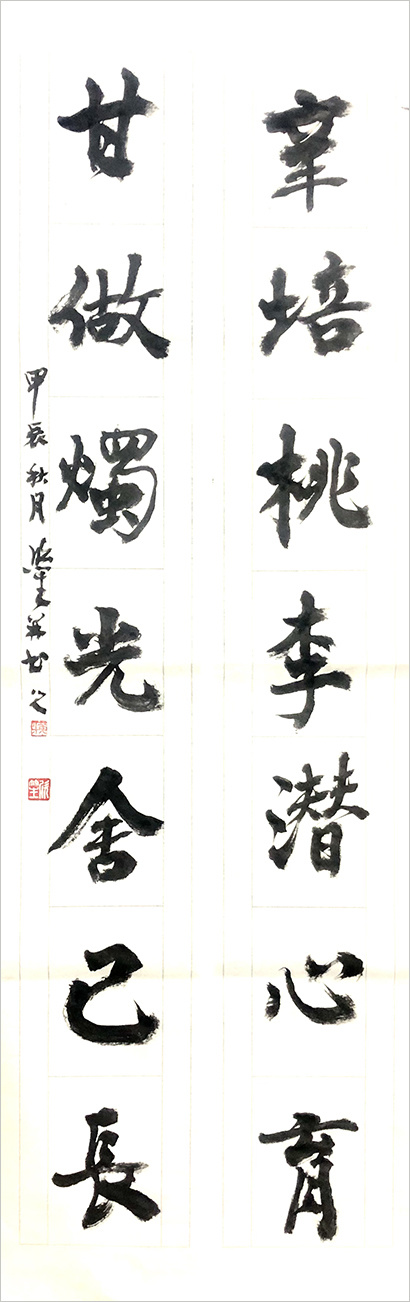 辛培桃李潜心育
甘做燭光舍己長
甲辰秋月